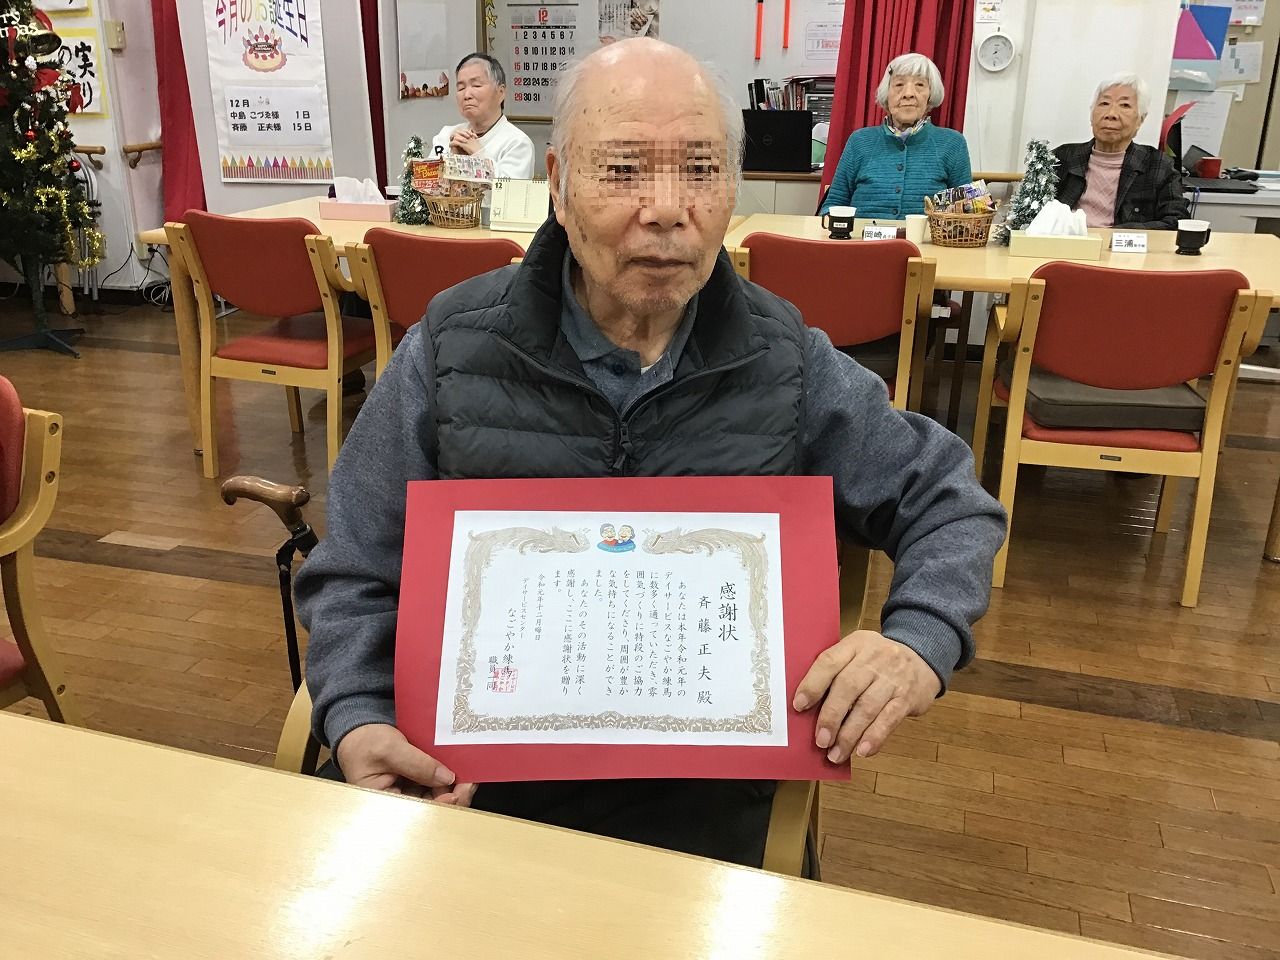 感謝状
斉藤正夫殿
あなたは本年令和元年の
デイサービスなごやか練馬
に数多く通っていただき、雰
囲気づくりに特段のご協力
をしてくださり、周囲が豊か
な気持ちになることができ
ました。
あなたのその活動に深く
感謝し、ここに感謝状を贈り
ます。
令和元年十二月晦日
デイサービスセンター
なごやか練馬
職員一同
今月のお誕生日
12月
中島 こづゑ様 1日
斉藤 正夫様 15日
mas
実り
の
12
1 2 3 4 5 6 7
8 9 10 11 12 13 14
15 16
22
29 30 31
12
岡崎
三浦